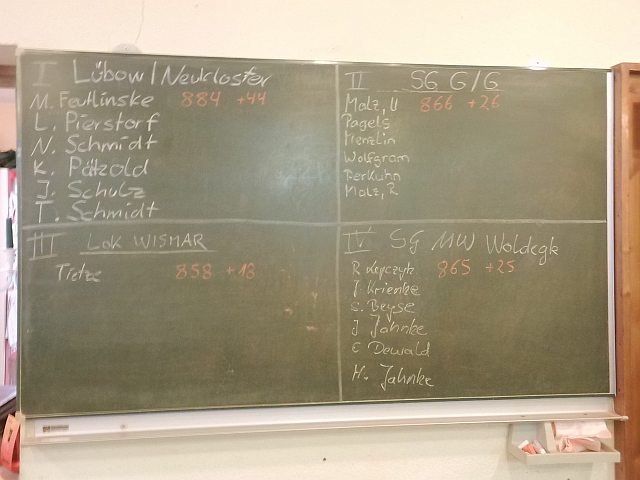 I Lübow/Neukloster
M. Feutlinske 884 +44
L. Pierstorf
N. Schmidt
K. Pätzold
J. Schulz
T. Schmidt
II SG G/G
Malz, U 866 +26
Pagels
Menzlin
Wolfgram
Ferkuhn
Malz, R
III LOK WISMAR
Tietze 858 +18
IV SG MW Woldegk
R 865 +25
J. Krienke
S. Beyse
J Jahnke
E Dewald
H. Jahnke